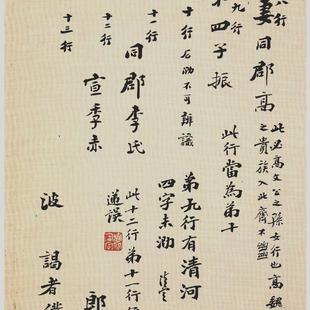 八行
妻同郡高
此必高文公之孫女行也高魏
之貴族入此齊不盡
九行
四子振
此行當為弟十
十行后泐不可辨識
弟九行有清河
四字未泐
十一行
同郡李氏
此十二行弟十一行
十二行
宣季赤
郎
十三行
波
謁者僕